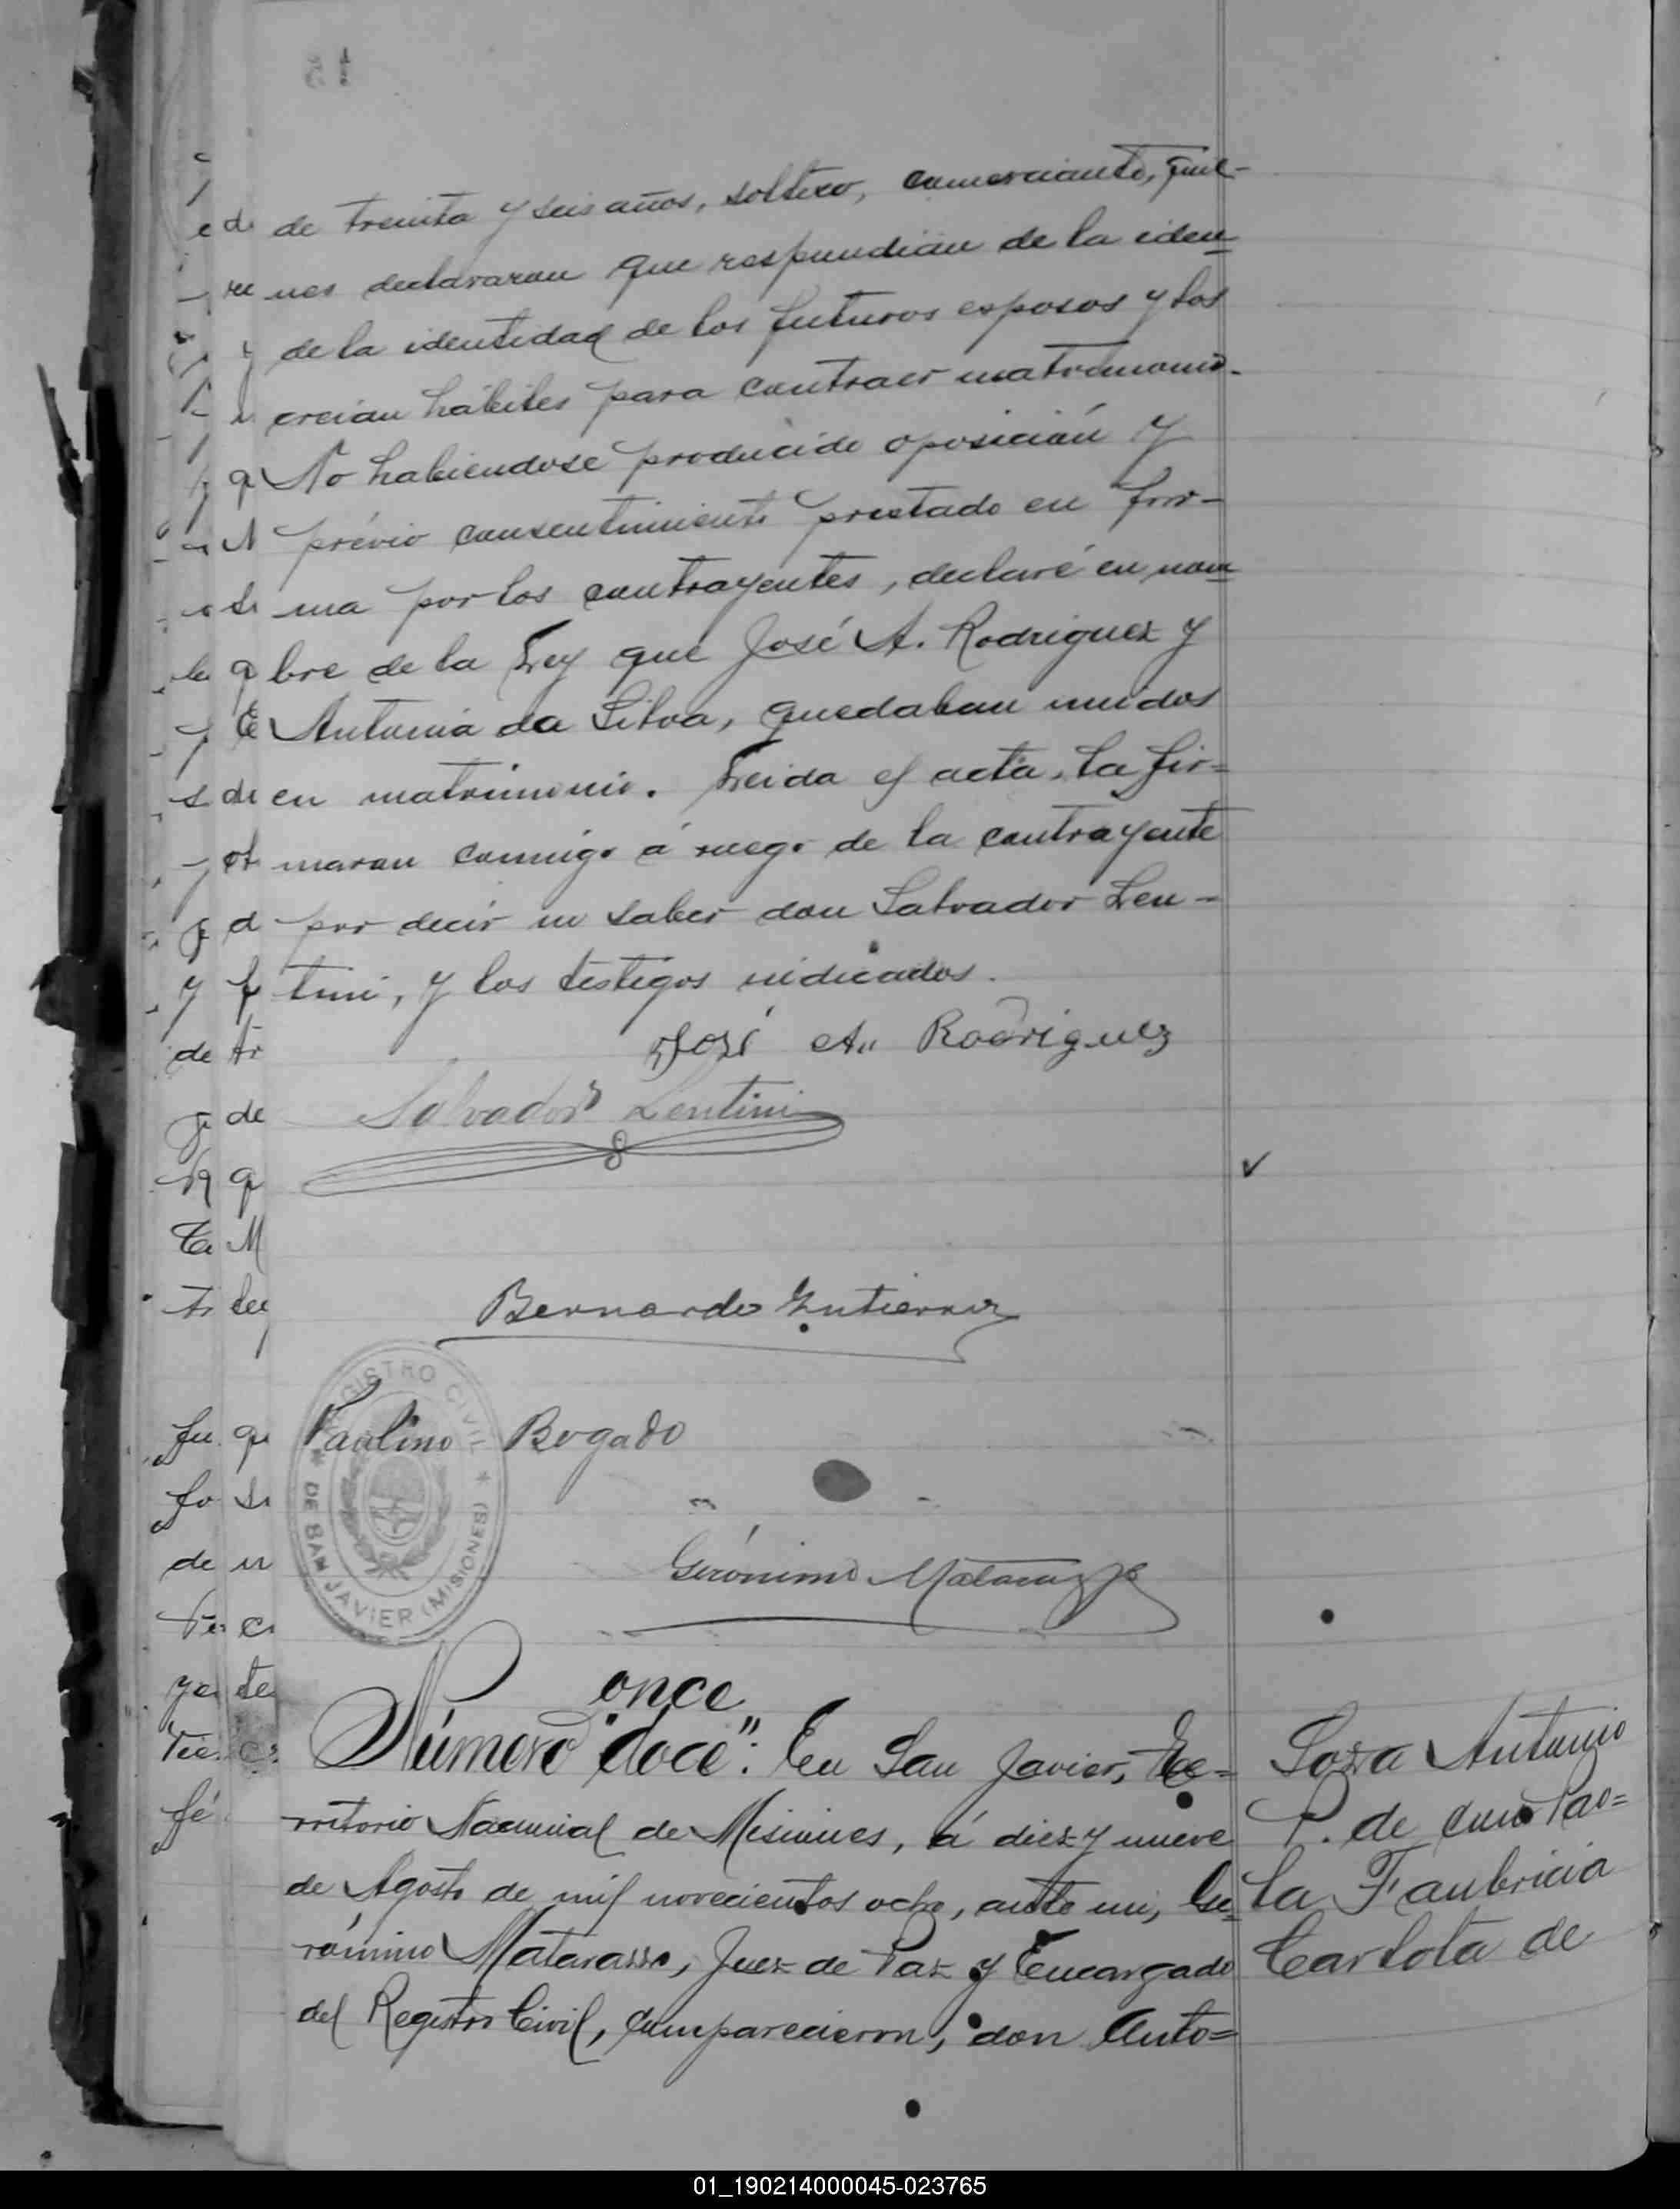 de treinta y seis años, soltero, comerciante, quie-
nes declararon que respondian de la iden
de la identidad de los futuros esposos y los
creian hábiles para contraer matrimonio.
No habiendose producido oposición y
prévio consentimiento prestado en for-
ma por los contrayentes, declaré en nom
bre de la Ley que José A. Rodriguez y
Antonia da Silva, quedaban unidos
en matrimonio. Leida el acta, la fir=
maron conmigo á ruego de la contrayente
por decir no saber don Salvador Len-
tini, y los testigos indicados.
José A. Rodriguez
Salvador Lentini
Bernardo Gutierrez
Paulino Bogado
REGISTRO CIVIL
DE SAN JAVIER (MISIONES)
Gerónimo Matarazzo
once
Número "doce": En San Javier, Te=
rritorio Nacional de Misiones, á diez y nueve
de Agosto de mil novecientos ocho, ante mi, Ge
rónimo Matarazzo, Juez de Paz y Encargado
del Registro Civil, comparecieron, don Anto=
Soza Antonio
P. de con Pao=
la Faubricia
Carlota de
01_190214000045-023765